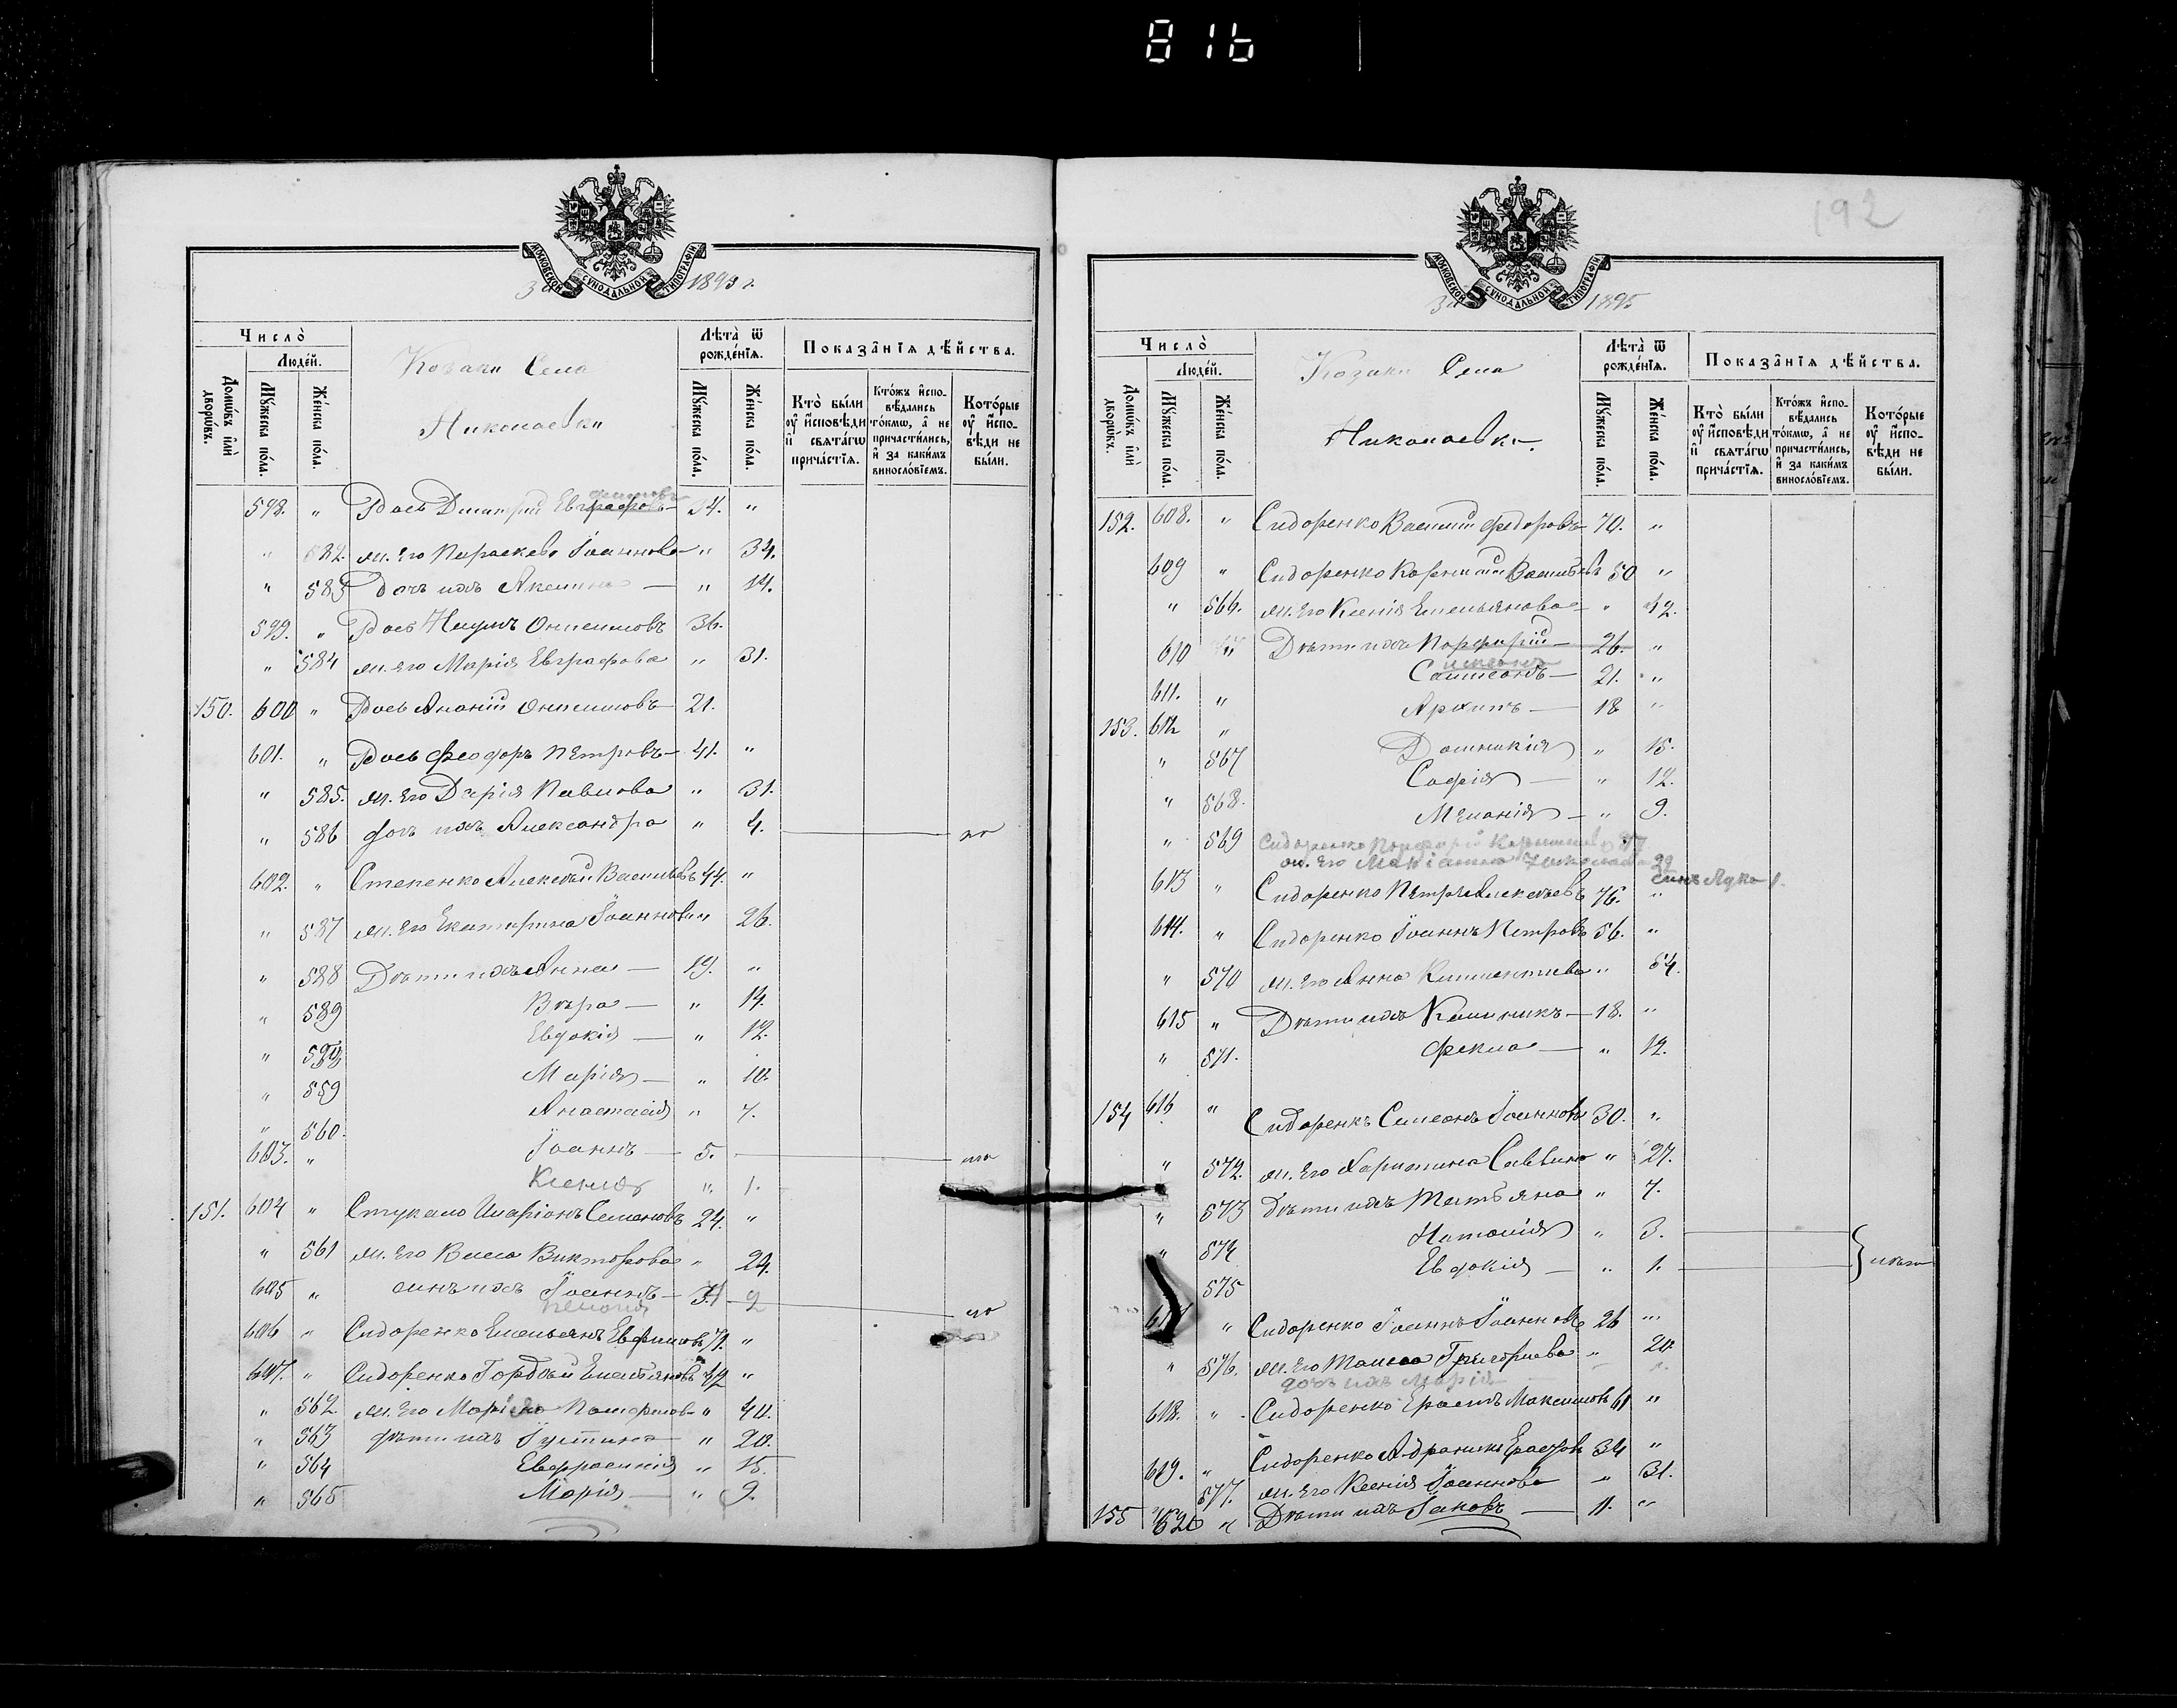 816
МОСКОВСКОЙ СѴНОДАЛЬНОЙ ТИПОГРАФІИ
За 1895 г.
Число̀
Людей.
Домѡвъ и҆лѝ дворѡвъ.
Мꙋжеска пола.
Женска пола.
Козаки Села
Николаевки
Лѣта̀ ѿ рожденїѧ.
Мꙋжеска пола.
Женска пола.
Показанїѧ дѣйства.
Кто̀ были оу҆ и҆сповѣди и҆ свѧтагѡ причастїѧ.
Ктожъ и҆сповѣдались токмѡ, а҆ не причастились, и҆ за какимъ винословїемъ.
Которые оу҆ и҆сповѣди не были.
598. " Рось Димитрій 34. "
" 582. ж. его Параскева Іоаннова " 34.
" 583 дочь ихъ Акилина — " 14.
599. " Рось Наумъ Онисимовъ 36.
" 584 ж. его Марія Евграфова " 31.
150. 600 " Рось Ананій Онисимовъ 21.
601. " Рось Феодоръ Петровъ 41. "
" 585. ж. его Дарія Павлова " 31.
" 586 дочь ихъ Александра " 4.
602. " Степенко Алексѣй Васильевъ 44. "
" 587 ж. его Екатерина Іоаннова " 26.
" 588 Дѣти ихъ Анна — 19. "
" 589 Вѣра — " 14.
" Евдокія — " 12.
" 559 Марія — " 10.
" 560. Анастасія " 7.
603. " Іоаннъ — 5.
Ксенія " 1.
151. 604 " Стукало Иларіонъ Семеновъ 24. "
" 561 ж. его Васса Викторова " 24.
605 " сынъ ихъ Іоаннъ — 2
606 " Сидоренко Емельянъ Евфимовъ 71. "
607. " Сидоренко Гордѣй Емельяновъ 42 "
" 562 ж. его Марія " 40.
" 563 дѣти ихъ Іустина " 20.
" 564 Евфросинія " 15.
" 565 Марія — " 9.
192
МОСКОВСКОЙ СѴНОДАЛЬНОЙ ТИПОГРАФІИ
За 1895
Число̀
Людей.
Домѡвъ и҆лѝ дворѡвъ.
Мꙋжеска пола.
Женска пола.
Козаки Села
Николаевки.
Лѣта̀ ѿ рожденїѧ.
Мꙋжеска пола.
Женска пола.
Показанїѧ дѣйства.
Кто̀ были оу҆ и҆сповѣди и҆ свѧтагѡ причастїѧ.
Ктожъ и҆сповѣдались токмѡ, а҆ не причастились, и҆ за какимъ винословїемъ.
Которые оу҆ и҆сповѣди не были.
152. 608. " Сидоренко Василій Федоровъ 70. "
609 " Сидоренко Корнилій Васильевъ 50 "
" 566. ж. его Ксенія Емельянова " 42.
610 " Дѣти ихъ Порфирій — 26. "
611. " Сампсонъ — 21. "
153. 612 " Архипъ — 18 "
" 567 Домникія " 15.
" 568. Софія — " 12.
" 569 Меланія — " 9.
Сидоренко Порфирій
ж. его 22
сынъ Лука 1.
613 " Сидоренко Петръ Алексѣевъ 76. "
614. " Сидоренко Іоаннъ Петровъ 56. "
" 570 ж. его Анна Климентіева " 54.
615 " Дѣти ихъ Калиникъ — 18. "
" 571. Фекла — " 12.
154 616 " Сидоренкъ Симеонъ Іоанновъ 30. "
" 572. ж. его Харитина Саввина " 27.
" 573 Дѣти ихъ Татьяна " 7.
" 574 Наталія " 3.
575 Евдокія — " 1.
" Сидоренко Іоаннъ Іоанновъ 26 "
" 576. ж. его Таисія Григоріева " 20.
дочь ихъ Марія
618. " Сидоренко Ерастъ Максимовъ 61 "
619. " Сидоренко Ерастовъ 34 "
577. ж. его Ксенія Іоаннова " 31.
155 620 " Дѣти ихъ Іаковъ — 11. "